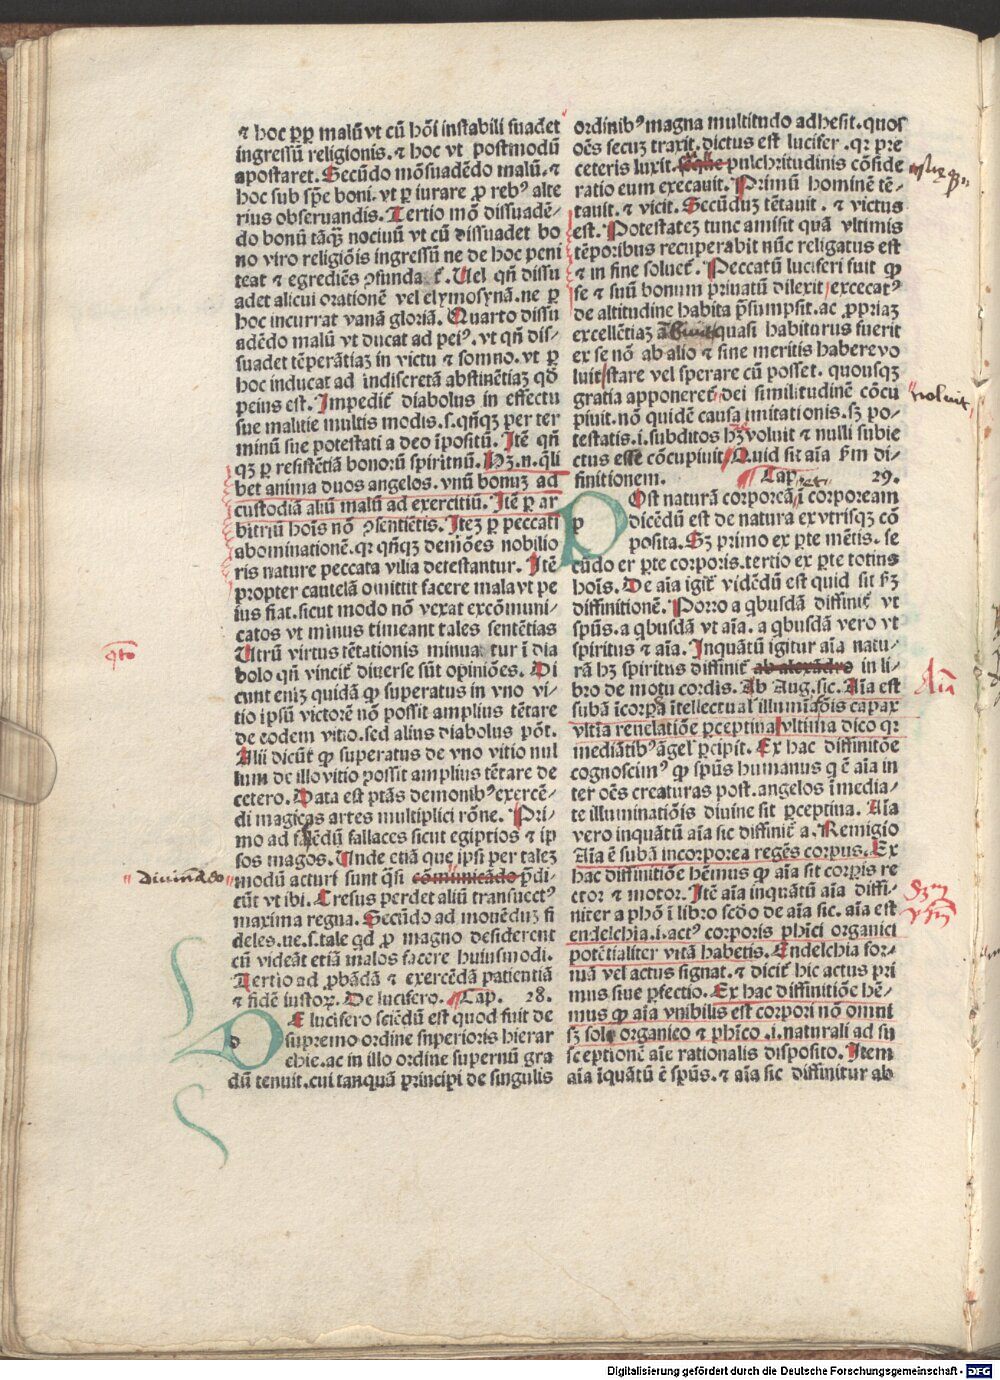 ⁊ hoc ꝓꝑ malū vt cū hōi instabili suadet
ingressū religionis. ⁊ hoc vt postmodū
apostaret. Secūdo mō suadēdo malū. ⁊
hoc sub spe̅ boni. vt ꝑ iurare ꝓ rebꝰ alte
rius obseruandis. Tertio mō dissuadē-
do bonū tāqꝫ nociuū vt cū dissuadet bo
no viro religiōis ingressū ne de hoc peni
teat ⁊ egrediēs ꝯfunda t̄. Uel qn̄ dissu
adet alicui orationē vel elymosynā. ne ꝑ
hoc incurrat vanā gloriā. Quarto dissu
adēdo malū vt ducat ad peiꝰ. vt qn̄ dis-
suadet tēperātiaꝫ in victu ⁊ somno. vt ꝑ
hoc inducat ad indiscretā abstinētiaꝫ qđ
peius est. Impedit̄ diabolus in effectu
sue malitie multis modis. s. qn̄qꝫ per ter
minū sue potestati a deo īpositū. Itē qn̄
qꝫ ꝑ resistētiā bonorū spirituū. Hꝫ.n.q̄li
bet anima duos angelos. vnū bonuꝫ ad
custodiā aliū malū ad exercitiū. Itē ꝑ ar
bitriū hoīs nō ꝯsentiētis. Iteꝫ ꝑ peccati
abominationē. qꝛ qn̄qꝫ demōes nobilio
ris nature peccata vilia detestantur. Itē
propter cautelā omittit facere mala vt pe
ius fiat. sicut modo nō vexat excōmuni-
catos vt minus timeant tales sentētias
Utrū virtus tētationis minua tur ī dia
bolo qn̄ vincit̄ diuerse sūt opiniōes. Di
cunt eniꝫ quidā ꝙ superatus in vno vi-
tio ipsū victorē nō possit amplius tētare
de eodem vitio. sed alius diabolus pōt.
Alii dicūt ꝙ superatus de vno vitio nul
lum de illo vitio possit amplius tētare de
cetero. Data est ptās demonibꝰ exercē-
di magicas artes multiplici rōne. Pri-
mo ad faꝉēdū fallaces sicut egiptios ⁊ ip
sos magos. Unde etiā que ipsi per taleꝫ
diuinādo modū acturi sunt q̄si cōmunicādo p̄di-
cūt vt ibi. Cresus perdet aliū transuectꝰ
maxima regna. Secūdo ad mouēduꝫ fi
deles. ne. s. tale qđ ꝓ magno desiderent
cū videāt etiā malos facere huiusmodi.
Tertio ad ꝓbādā ⁊ exercēdā patientiā
⁊ fidē iustoꝝ. De lucifero. Cap. 28.
d
DE lucifero sciēdū est quod fuit de
supremo ordine superioris hierar
chie. ac in illo ordine supernū gra
dū tenuit. cui tanquā principi de singulis
q̄to
ordinibꝰ magna multitudo adhesit. quos
oēs secuꝫ traxit. dictus est lucifer. qꝛ pre
ceteris luxit. pulchritudinis cōside
ratio eum execauit. Primū hominē tē-
tauit. ⁊ vicit. Secūduꝫ tētauit. ⁊ victus
est. Potestateꝫ tunc amisit quā vltimis
tēporibus recuperabit nūc religatus est
⁊ in fine soluet̄. Peccatū luciferi fuit ꝙ
se ⁊ suū bonum priuatū dilexit excecatꝰ
de altitudine habita p̄sumpsit. ac ꝓpriaꝫ
excellētiaꝫ quasi habiturus fuerit
ex se nō ab alio ⁊ sine meritis habere vo
luit stare vel sperare cū posset. quousqꝫ
gratia apponeret̄ dei similitudinē cōcu
noluit
piuit. nō quidē causa imitationis. sꝫ po-
testatis. i. subditos hꝫ voluit ⁊ nulli subie
ctus esse cōcupiuit. Quid sit aīa ẜm di-
finitionem. Cap. 29.
p
POst naturā corporeā ī corpoream
dicēdū est de natura ex vtrisqꝫ cō
posita. Sꝫ primo ex ꝑte mētis. se
cūdo ex ꝑte corporis. tertio ex ꝑte totius
hoīs. De aīa igit̄ vidēdū est quid sit ẜꝫ
diffinitionē. Porro a qbusdā diffinit̄ vt
spūs. a qbusdā vt aīa. a qbusdā vero vt
spiritus ⁊ aīa. Inquātū igitur aīa natu-
rā hꝫ spiritus diffinit̄ ab alexādro in li-
bro de motu cordis. Ab Aug. sic. Aīa est
Aīa
subā īcorpā ītellectual̄ illumīatōis capax
vltīa reuelatiōe ꝑceptiua vltima dico qꝛ
mediātibꝰ āgel̄ ꝑcipit. Ex hac diffinitōe
cognoscimꝰ ꝙ spūs humanus q ē aīa in
ter oēs creaturas post. angelos īmedia-
te illuminatiōis diuine sit ꝑceptiua. Aīa
vero inquātū aīa sic diffinit̄ a. Remigio
Aīa ē subā incorporea regēs corpus. Ex
hac diffinitiōe hēmus ꝙ aīa sit corꝑis re
ctor ⁊ motor. Itē aīa inquātū aīa diffi-
niter a phō ī libro scd̄o de aīa sic. aīa est
endelchia. i. actꝰ corporis phīci organici
potētialiter vitā habētis. Endelchia for-
mā vel actus signat. ⁊ dicit̄ hic actus pri
mus siue ꝑfectio. Ex hac diffinitiōe hē-
mus ꝙ aīa vnibilis est corpori nō omni
sꝫ soli organico ⁊ phīco. i. naturali ad su
sceptionē aīe rationalis disposito. Item
aīa īquātū ē spūs. ⁊ aīa sic diffinitur ab
Digitalisierung gefördert durch die Deutsche Forschungsgemeinschaft - DFG